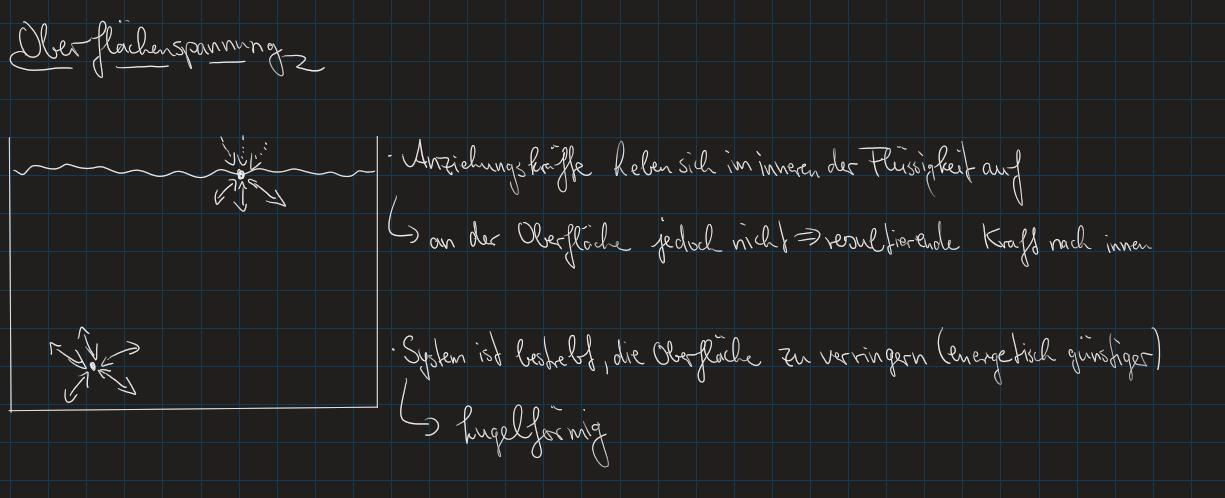 Oberflächenspannung
· Anziehungskräfte heben sich im inneren der Flüssigkeit auf
↳ an der Oberfläche jedoch nicht ⇒ resultierende Kraft nach innen
· System ist bestrebt, die Oberfläche zu verringern (energetisch günstiger)
↳ kugelförmig